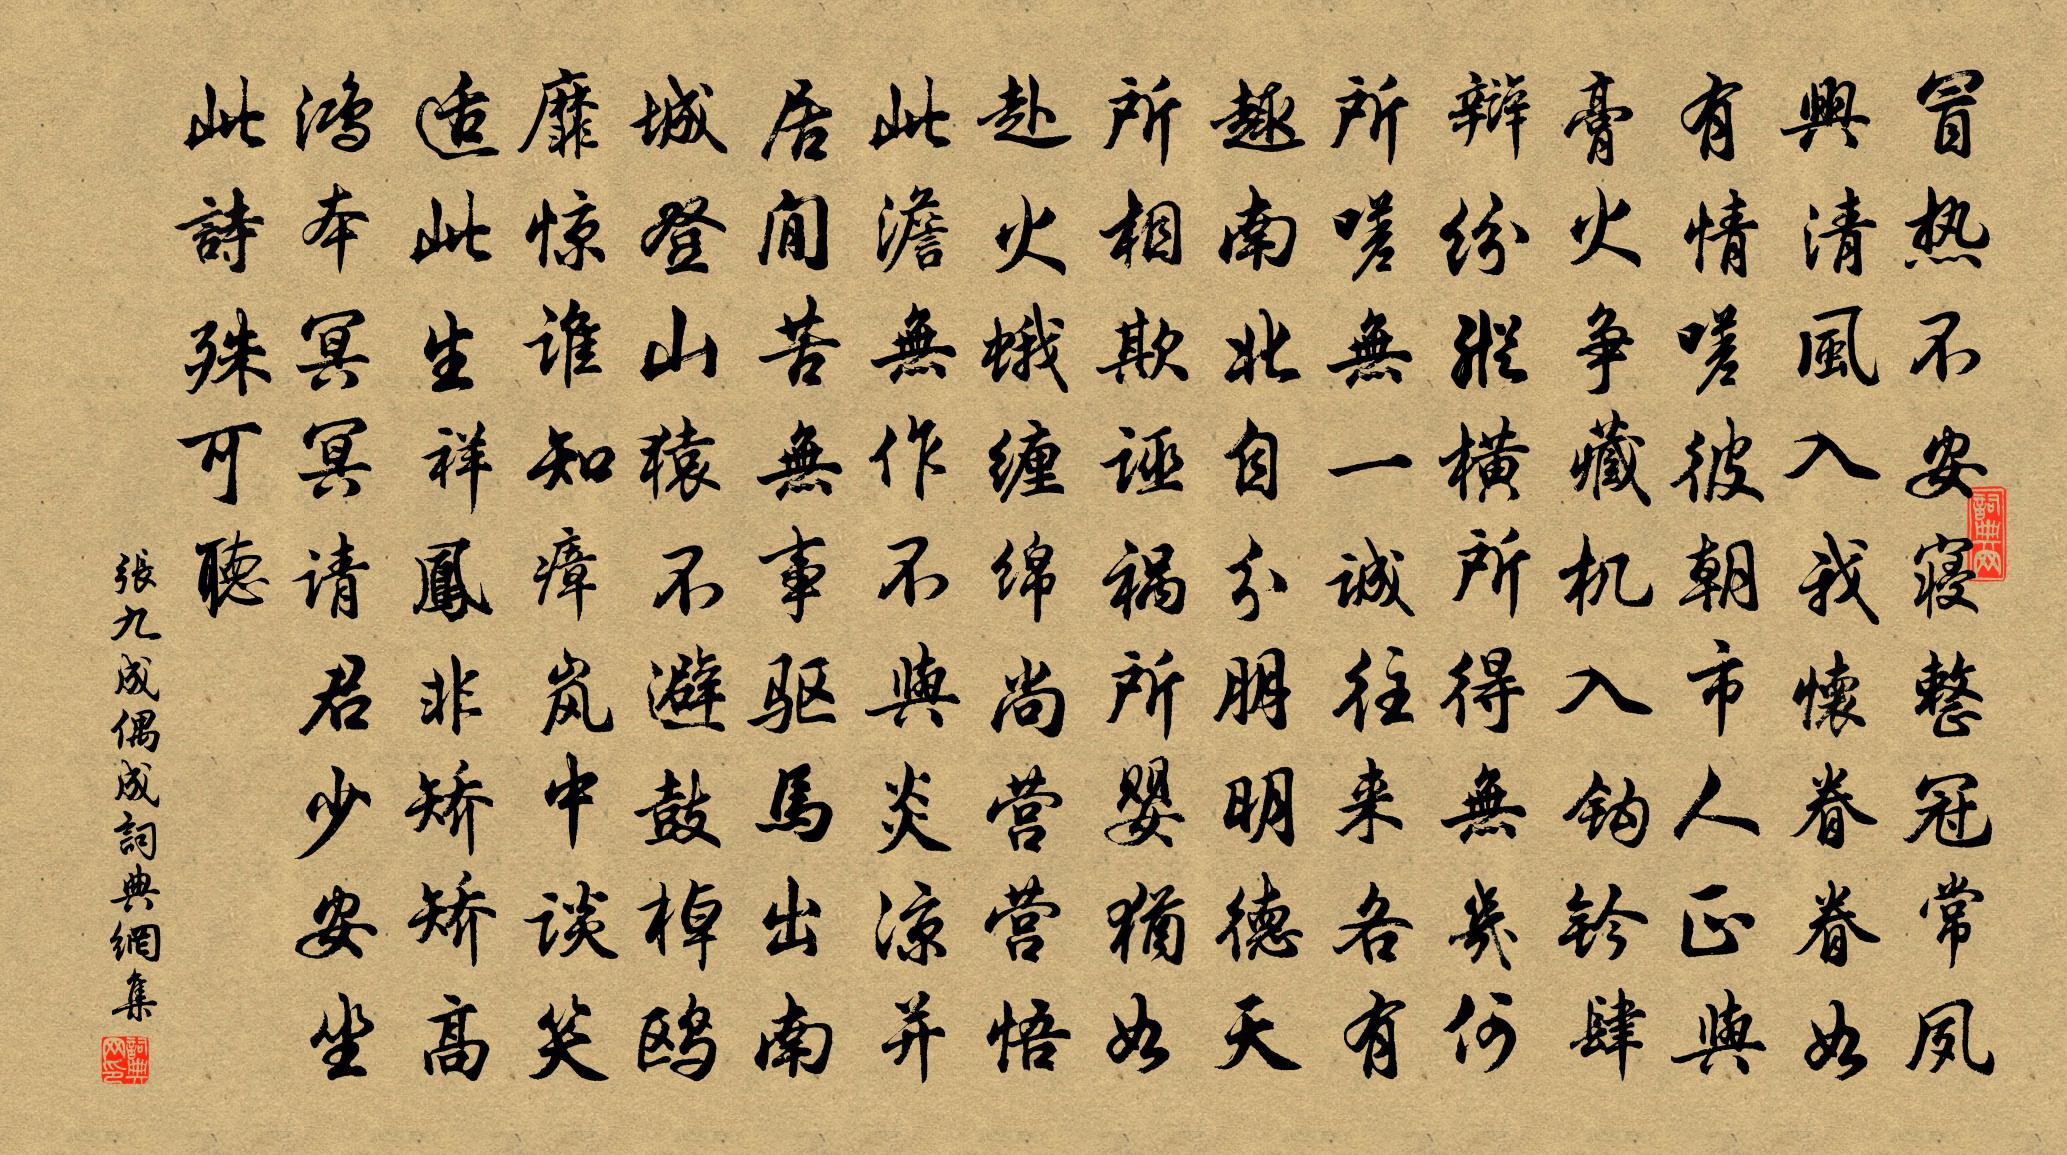 冒热不安寝整冠常夙
興清風入我懷眷眷如
有情嗟彼朝市人正與
膏火争藏机入钩钤肆
辩纷纵横所得無幾何
所嗟無一诚往来各有
趣南北自分朋明德天
所相欺诬祸所婴犹如
赴火蛾缠绵尚营营悟
此澹無作不與炎凉并
居閒苦無事驱馬出南
城登山猿不避鼓棹鸥
靡惊谁知瘴岚中谈笑
适此生祥鳳非矫矫高
鸿本冥冥请君少安坐
此詩殊可聽
張九成偶成詞典網集
詞典网
詞典网印